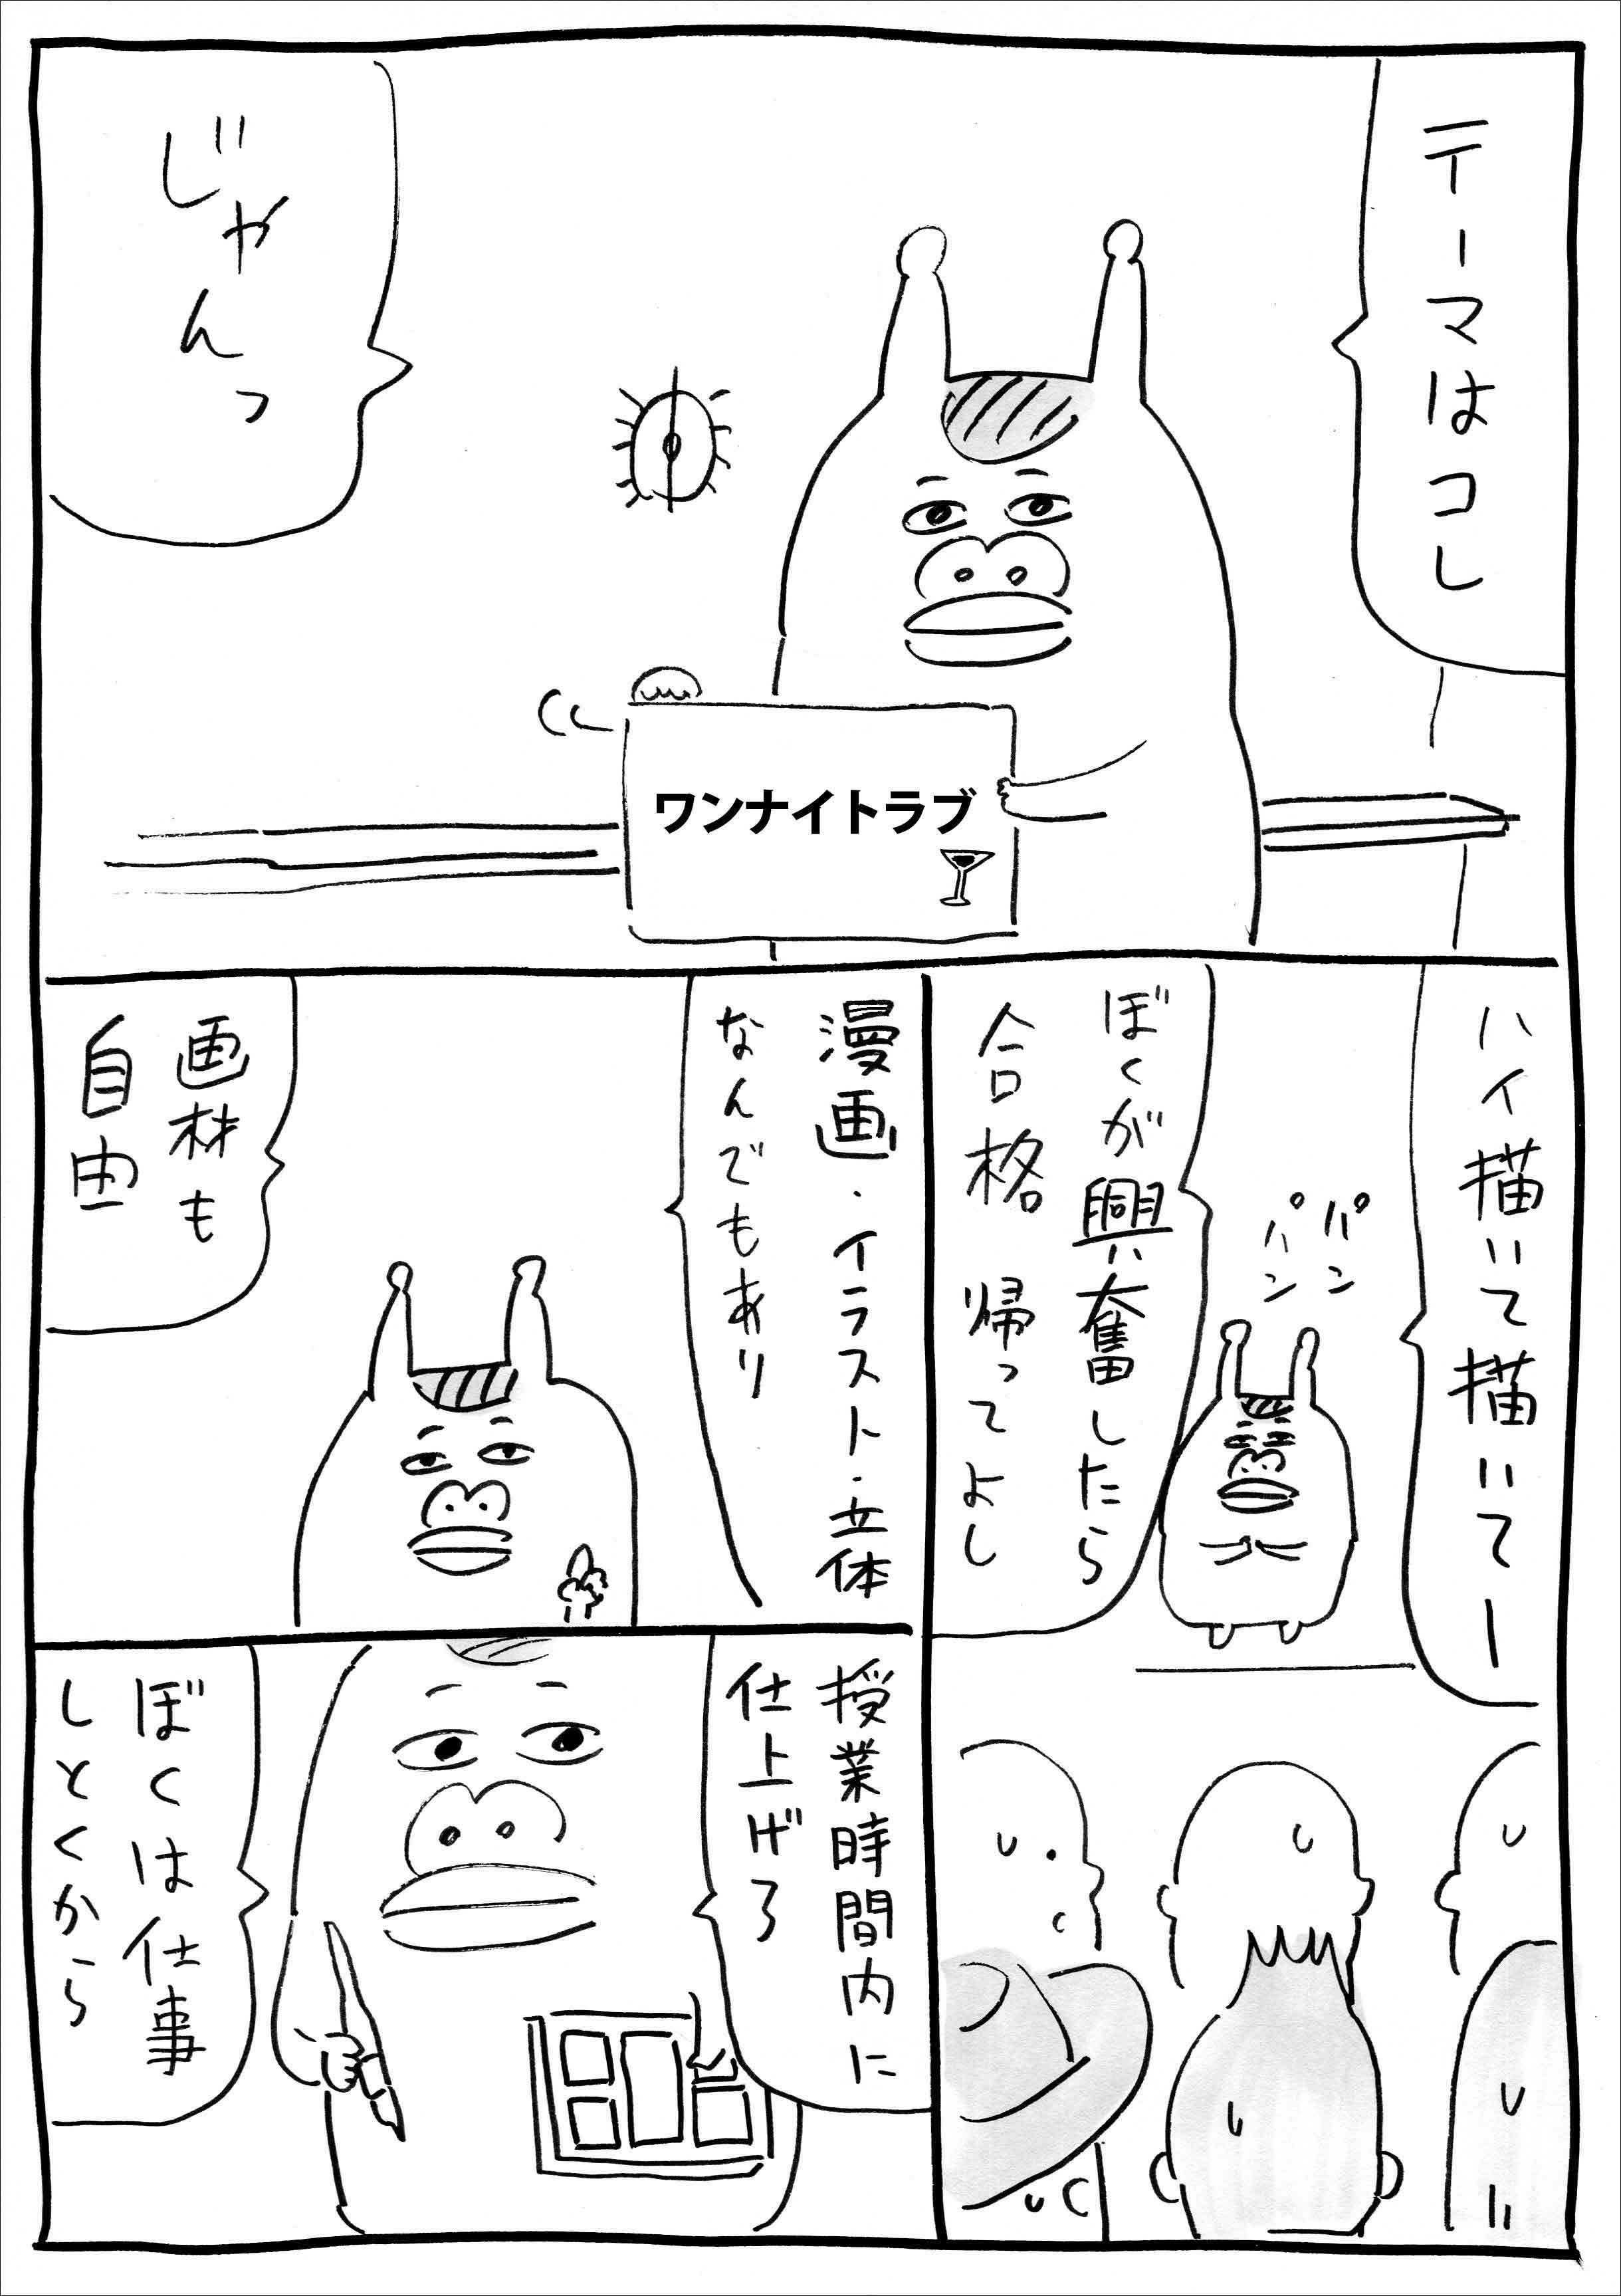 テーマはコレ
じゃんっ
ワンナイトラブ
ハイ描いて描いてー
パン
パン
ぼくが興奮したら
合格 帰ってよし
漫画・イラスト・立体
なんでもあり
画材も
自由
授業時間内に
仕上げろ
ぼくは仕事
しとくから